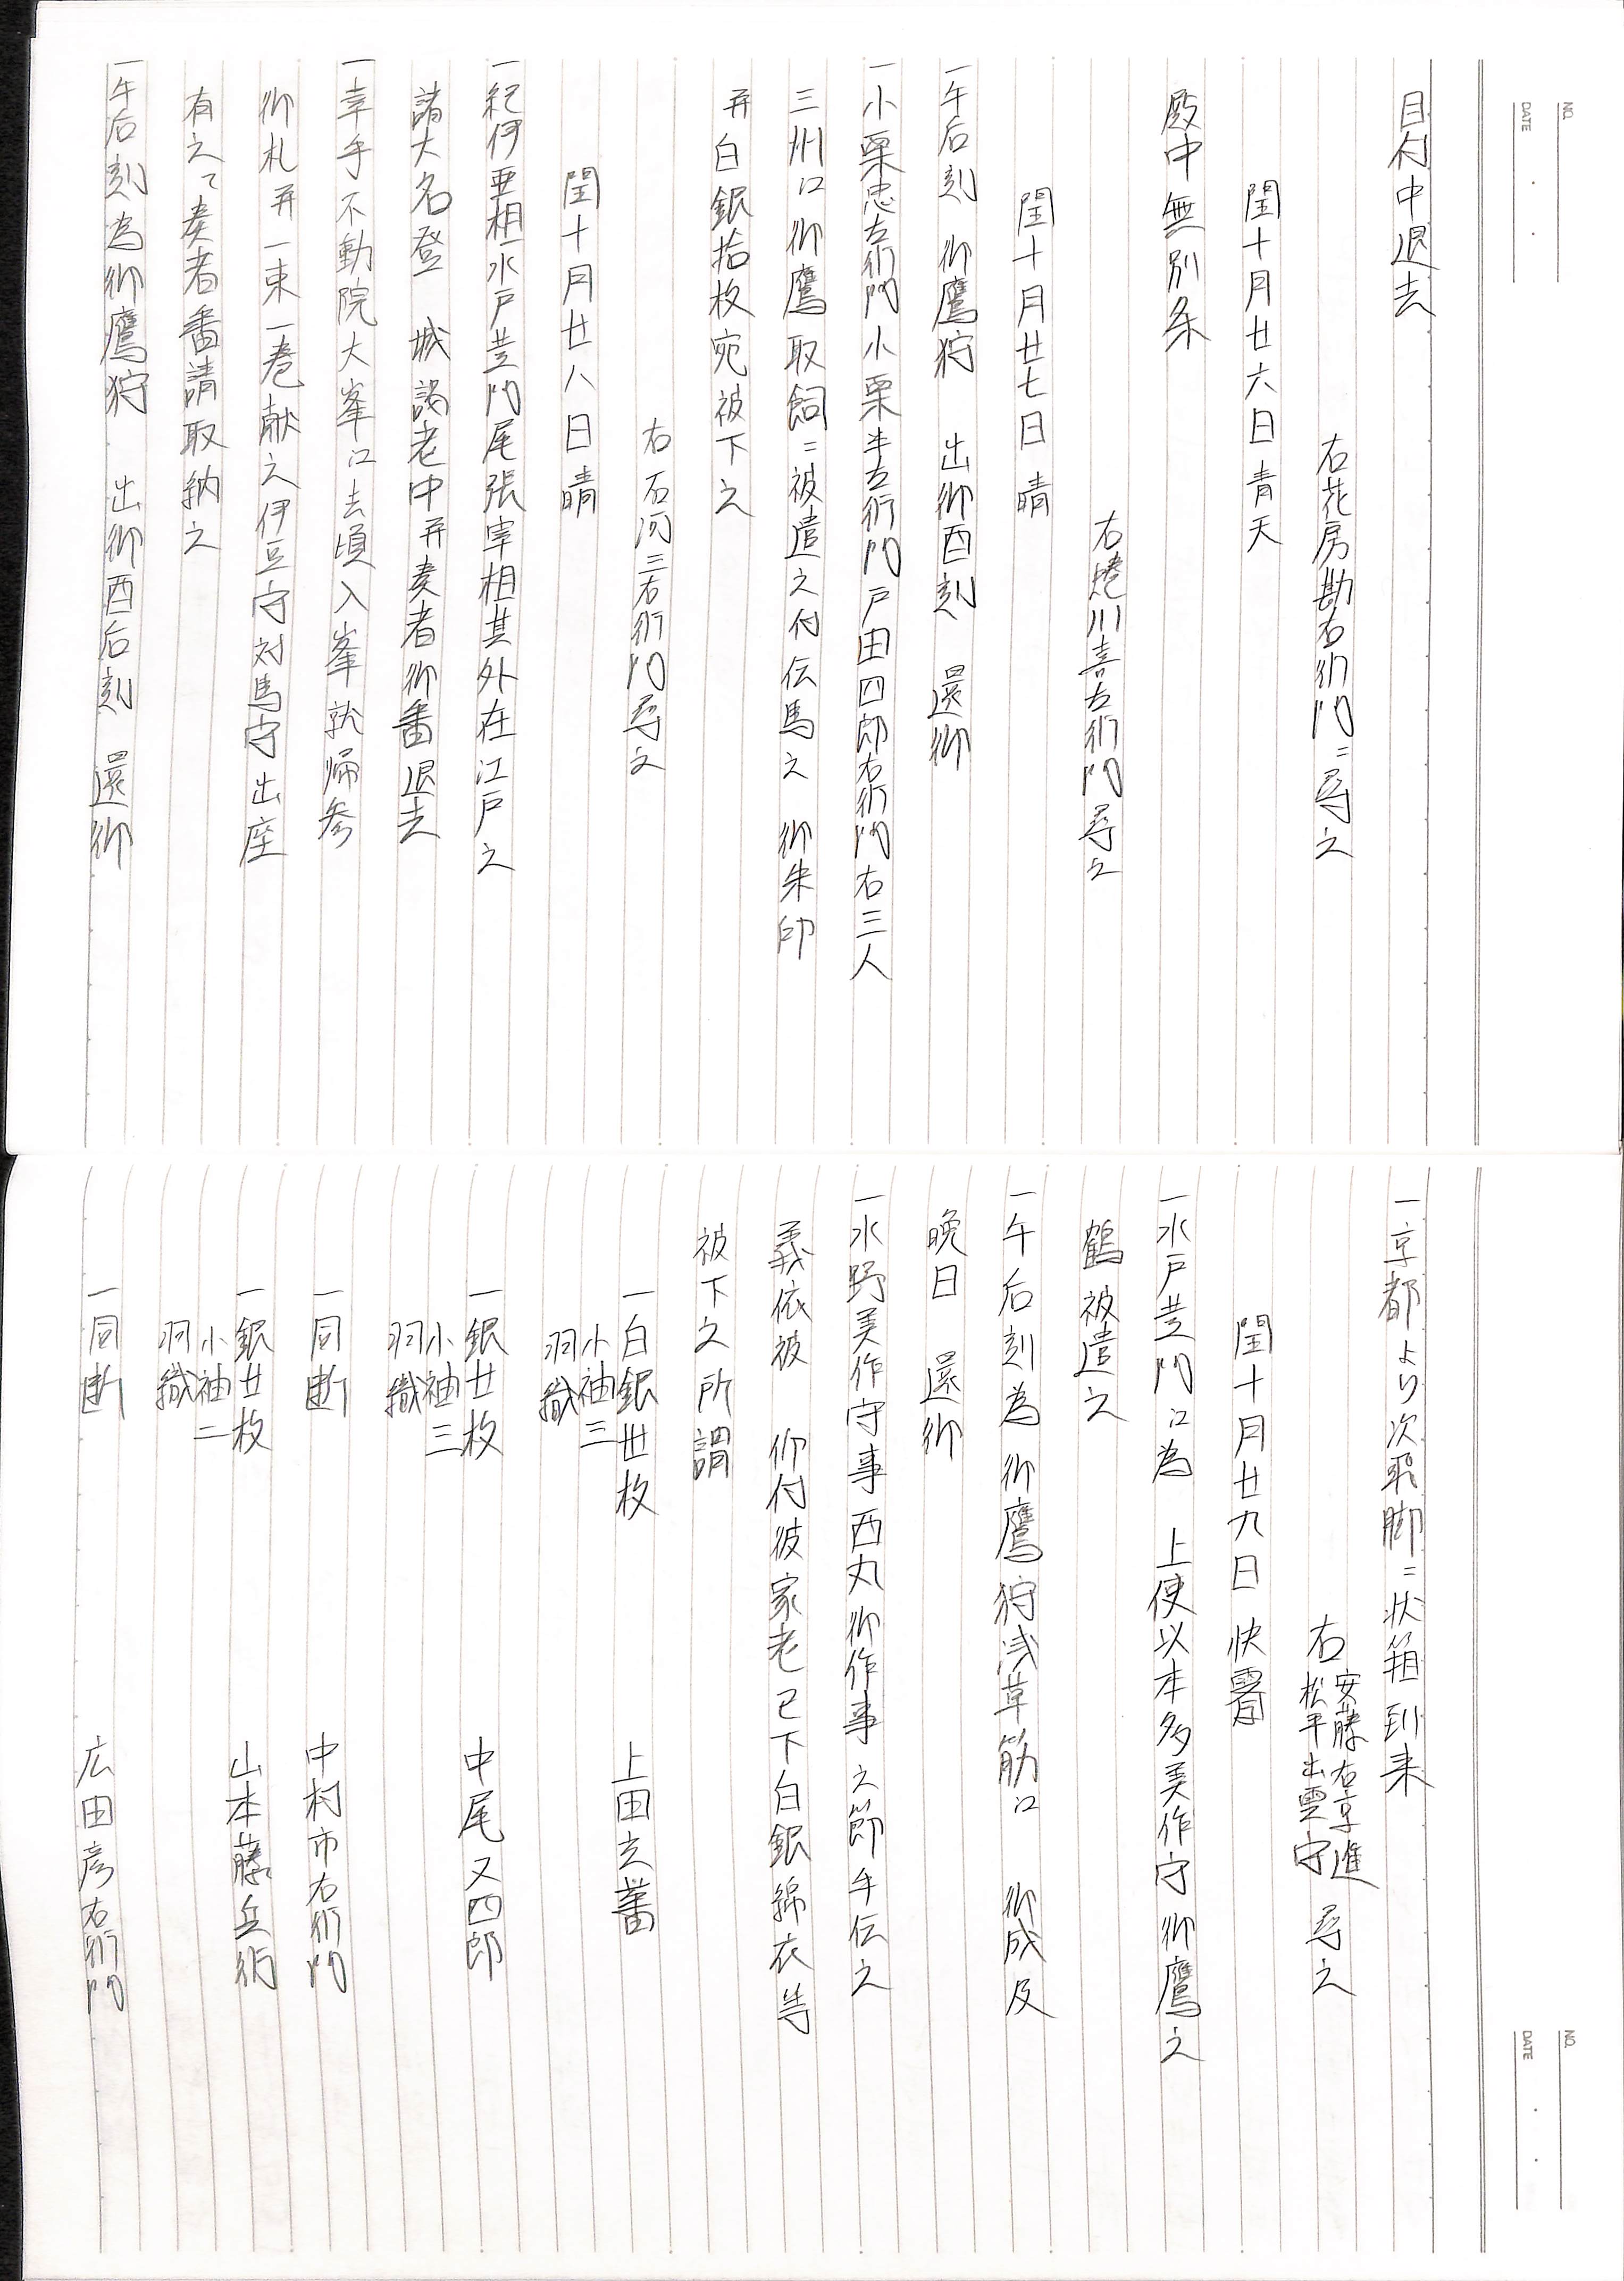 目付中退去
右花房勘右衛門ニ尋之
閏十月廿六日 青天
殿中無別条
右蜷川喜左衛門尋之
閏十月廿七日 晴
一午后刻 御鷹狩 出御酉刻 還御
一小栗忠左衛門小栗半左衛門戸田四郎右衛門右三人
三州江御鷹取飼ニ被遣之付伝馬之 御朱印
并白銀拾枚宛被下之
右石河三右衛門尋之
閏十月廿八日 晴
一紀伊亜相水戸黄門尾張宰相其外在江戸之
諸大名登 城謁老中并奏者御番退去
一幸手不動院大峯江去頃入峯就帰参
御札并一束一巻献之伊豆守対馬守出座
有之て奏者番請取納之
一午后刻為御鷹狩 出御酉后刻 還御
一京都より次飛脚ニ状箱到来
右安藤右京進 松平出雲守 尋之
閏十月廿九日 快霽
一水戸黄門江為 上使以本多美作守御鷹之
鶴被遣之
一午后刻為御鷹狩浅草筋江 御成及
晩日 還御
一水野美作守事西丸御作事之節手伝之
義依被 仰付彼家老已下白銀綿衣等
被下之所謂
一白銀卅枚 小袖三 羽織 上田玄蕃
一銀廿枚 小袖三 羽織 中尾又四郎
一同断 中村市右衛門
一銀廿枚 小袖二 羽織 山本藤兵衛
一同断 広田彦右衛門
NO.
DATE
NO.
DATE